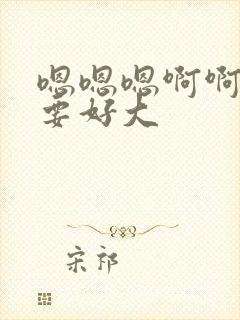 嗯嗯嗯啊啊
要好大
宋祁